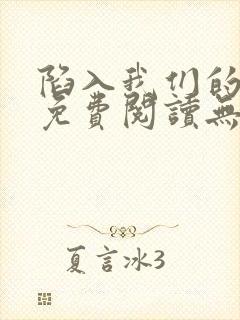 陷入我们的
免費閱讀無
夏言冰3